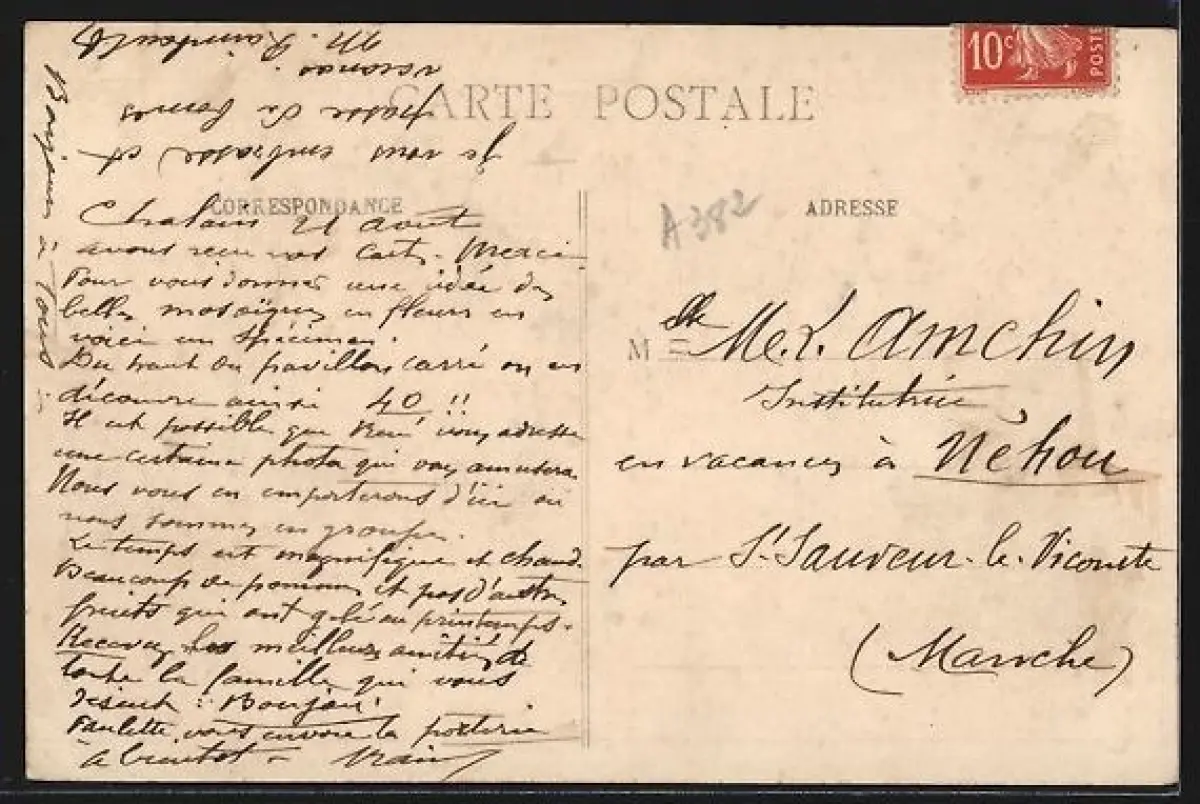 CARTE POSTALE
CORRESPONDANCE
ADRESSE
10c
POSTE
A382
Chalans 21 août
avons reçu vos cart. Merci
Pour vous donner une idée des
belles mosaïques en fleurs en
voici un spécimen.
Du haut du pavillon carré on en
découvre ainsi 40 !!
Il est possible que René vous adresse
une certaine photo qui vous amusera
Nous vous en emporterons d'ici où
nous sommes en groupe.
Le temps est magnifique et chaud.
Beaucoup de pommes et pas d'autres
fruits qui ont gelé au printemps.
Recevez les meilleures amitiés de
toute la famille qui vous
disent : Bonjour
Paulette vous envoie la
à bientôt
Je vous embrasse et
passe de bonnes
M.
Bonjour à Tous
M elle Me. L. Amchin
Institutrice
en vacances à Néhou
par St Sauveur-le-Vicomte
(Manche)